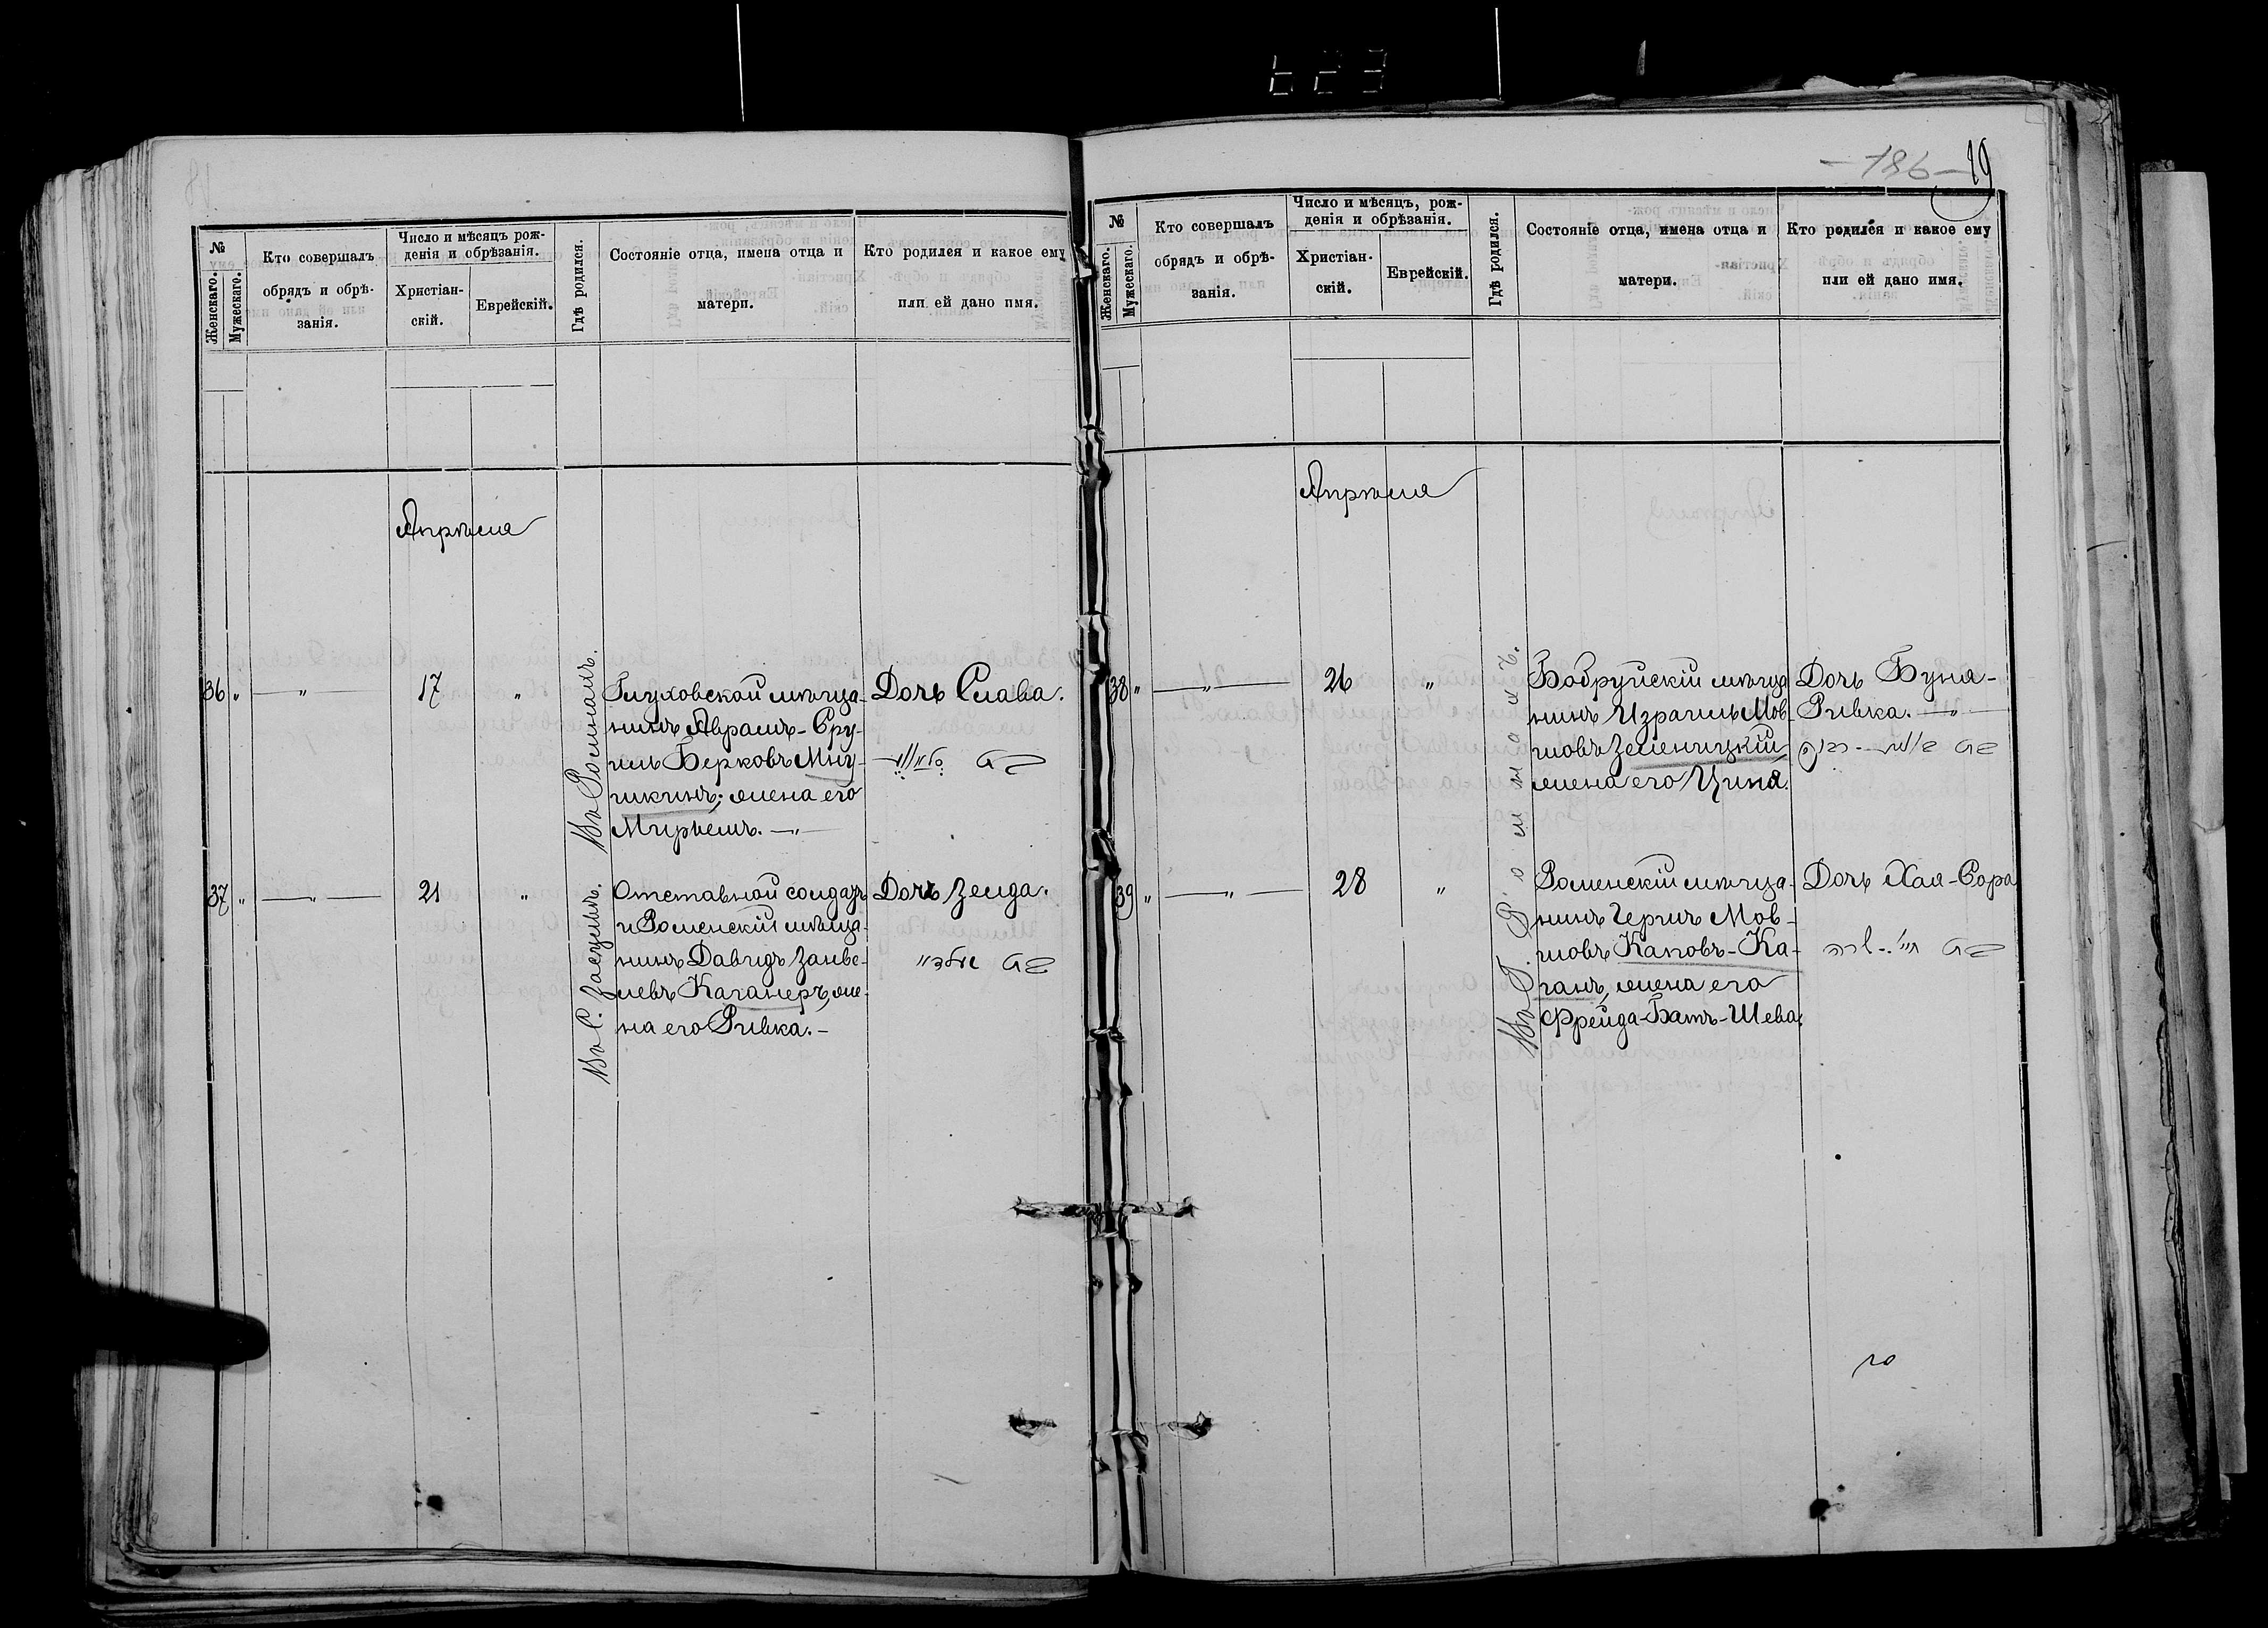 - 186 -
19
№
Женскаго.
Мужескаго.
Кто совершалъ
обрядъ и обрѣ-
занія.
Число и мѣсяцъ рож-
денія и обрѣзанія.
Христіан-
скій.
Еврейскій.
Гдѣ родился.
Состояніе отца, имена отца и
матери.
Кто родился и какое ему
или ей дано имя.
Апрѣля
36 " — " — 17 "
Въ Ромнахъ.
Глуховской мѣща-
нинъ Абрамъ-Сру-
иль Берковъ Мну-
шкинъ; жена его
Мирьемъ. — " —
Дочь Слава.
בת
37 " — " — 21 "
Въ С. Засульѣ.
Отставной солдатъ
и Роменскій мѣща-
нинъ Давидъ Занве-
левъ Каганеръ, же-
на его Ривка. -
Дочь Зелда.
בת זעלדא
№
Женскаго.
Мужескаго.
Кто совершалъ
обрядъ и обрѣ-
занія.
Число и мѣсяцъ, рож-
денія и обрѣзанія.
Христіан-
скій.
Еврейскій.
Гдѣ родился.
Состояніе отца, имена отца и
матери.
Кто родился и какое ему
или ей дано имя.
Апрѣля
38 " — " — 26 "
Въ Г. Ромнахъ.
Бобруйскій мѣща
нинъ Израиль Мов-
шовъ Зеленицкій
жена его Цина.
Дочь Буня-
Ривка. — " —
בת
39 " — " — 28 "
Роменскій мѣща-
нинъ Герцъ Мов-
шовъ Каповъ-Ка-
ганъ, жена его
Фрейда-Батъ-Шева.
Дочь Хая-Сора
בת חי' - שרה